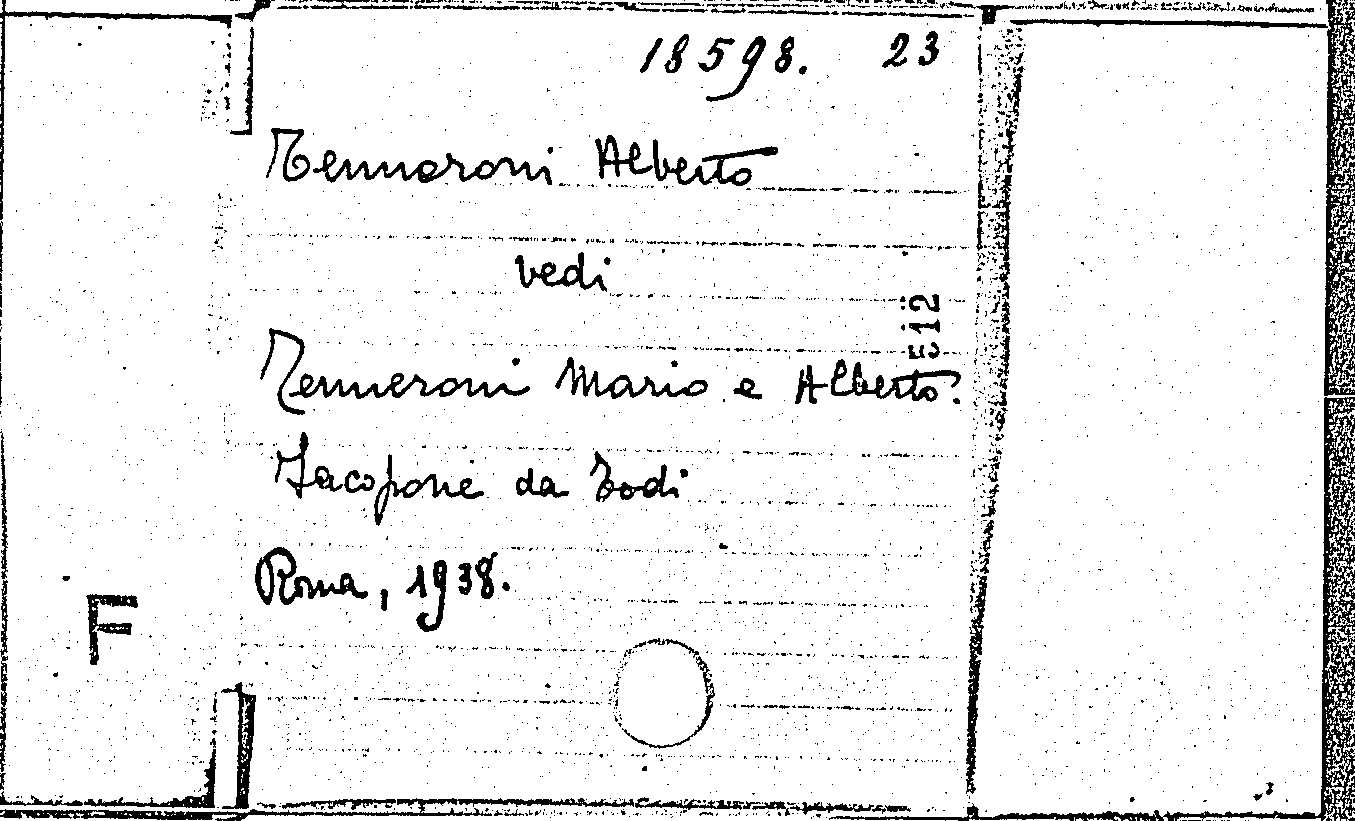 18598. 23
Tenneroni Alberto
vedi
E12
Tenneroni Mario e Alberto.
Jacopone da Todi
Roma, 1938.
F